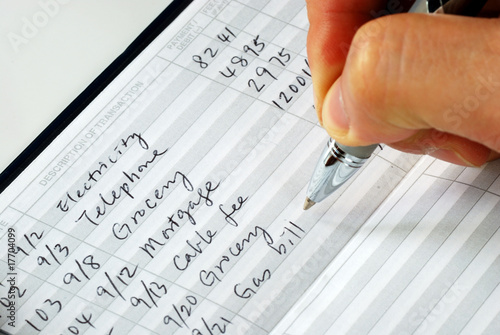 DESCRIPTION OF TRANSACTION PAYMENT/ DEBIT
9/2 Electricity 82 41
9/3 Telephone 48 95
103 9/8 Grocery 29 75
104 9/12 Mortgage 1200
9/13 Cable fee
9/20 Grocery
9/21 Gas bill
Adobe Stock | #17704099